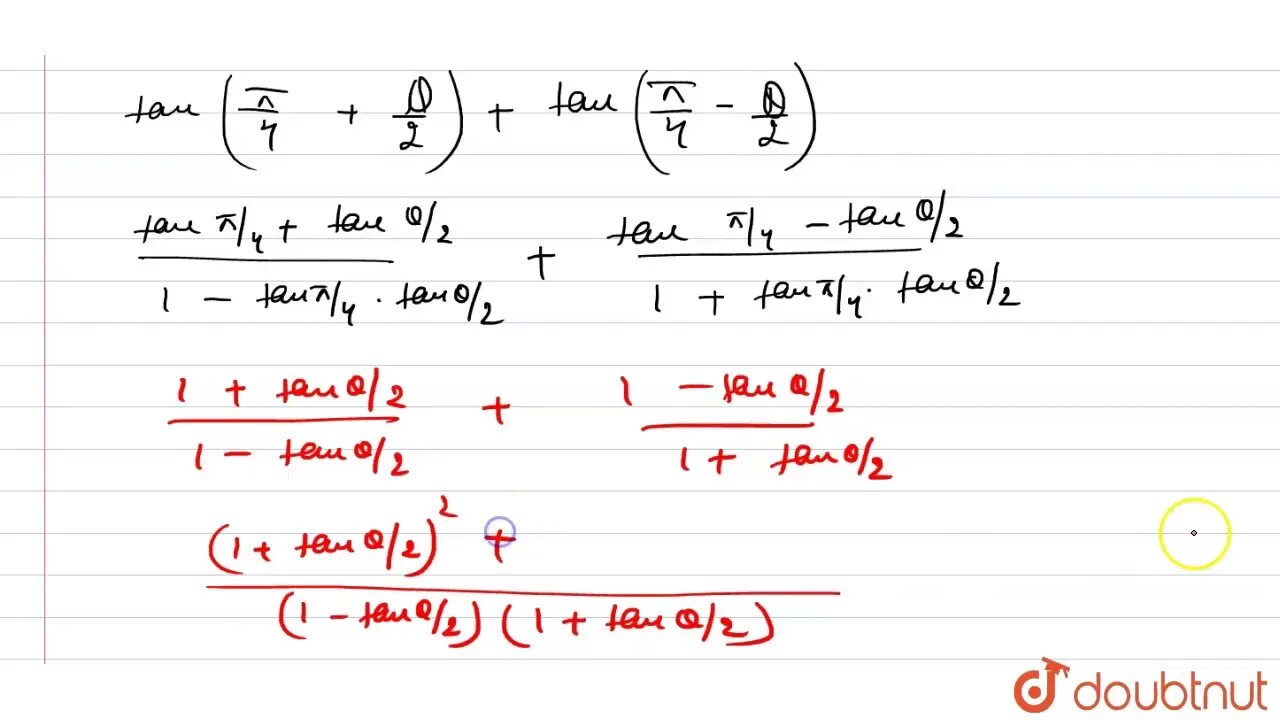 tan (π/4 + θ/2) + tan (π/4 - θ/2)
tan π/4 + tan θ/2 / 1 - tan π/4 · tan θ/2 + tan π/4 - tan θ/2 / 1 + tan π/4 · tan θ/2
1 + tan θ/2 / 1 - tan θ/2 + 1 - tan θ/2 / 1 + tan θ/2
(1 + tan θ/2)² + / (1 - tan θ/2) (1 + tan θ/2)
doubtnut